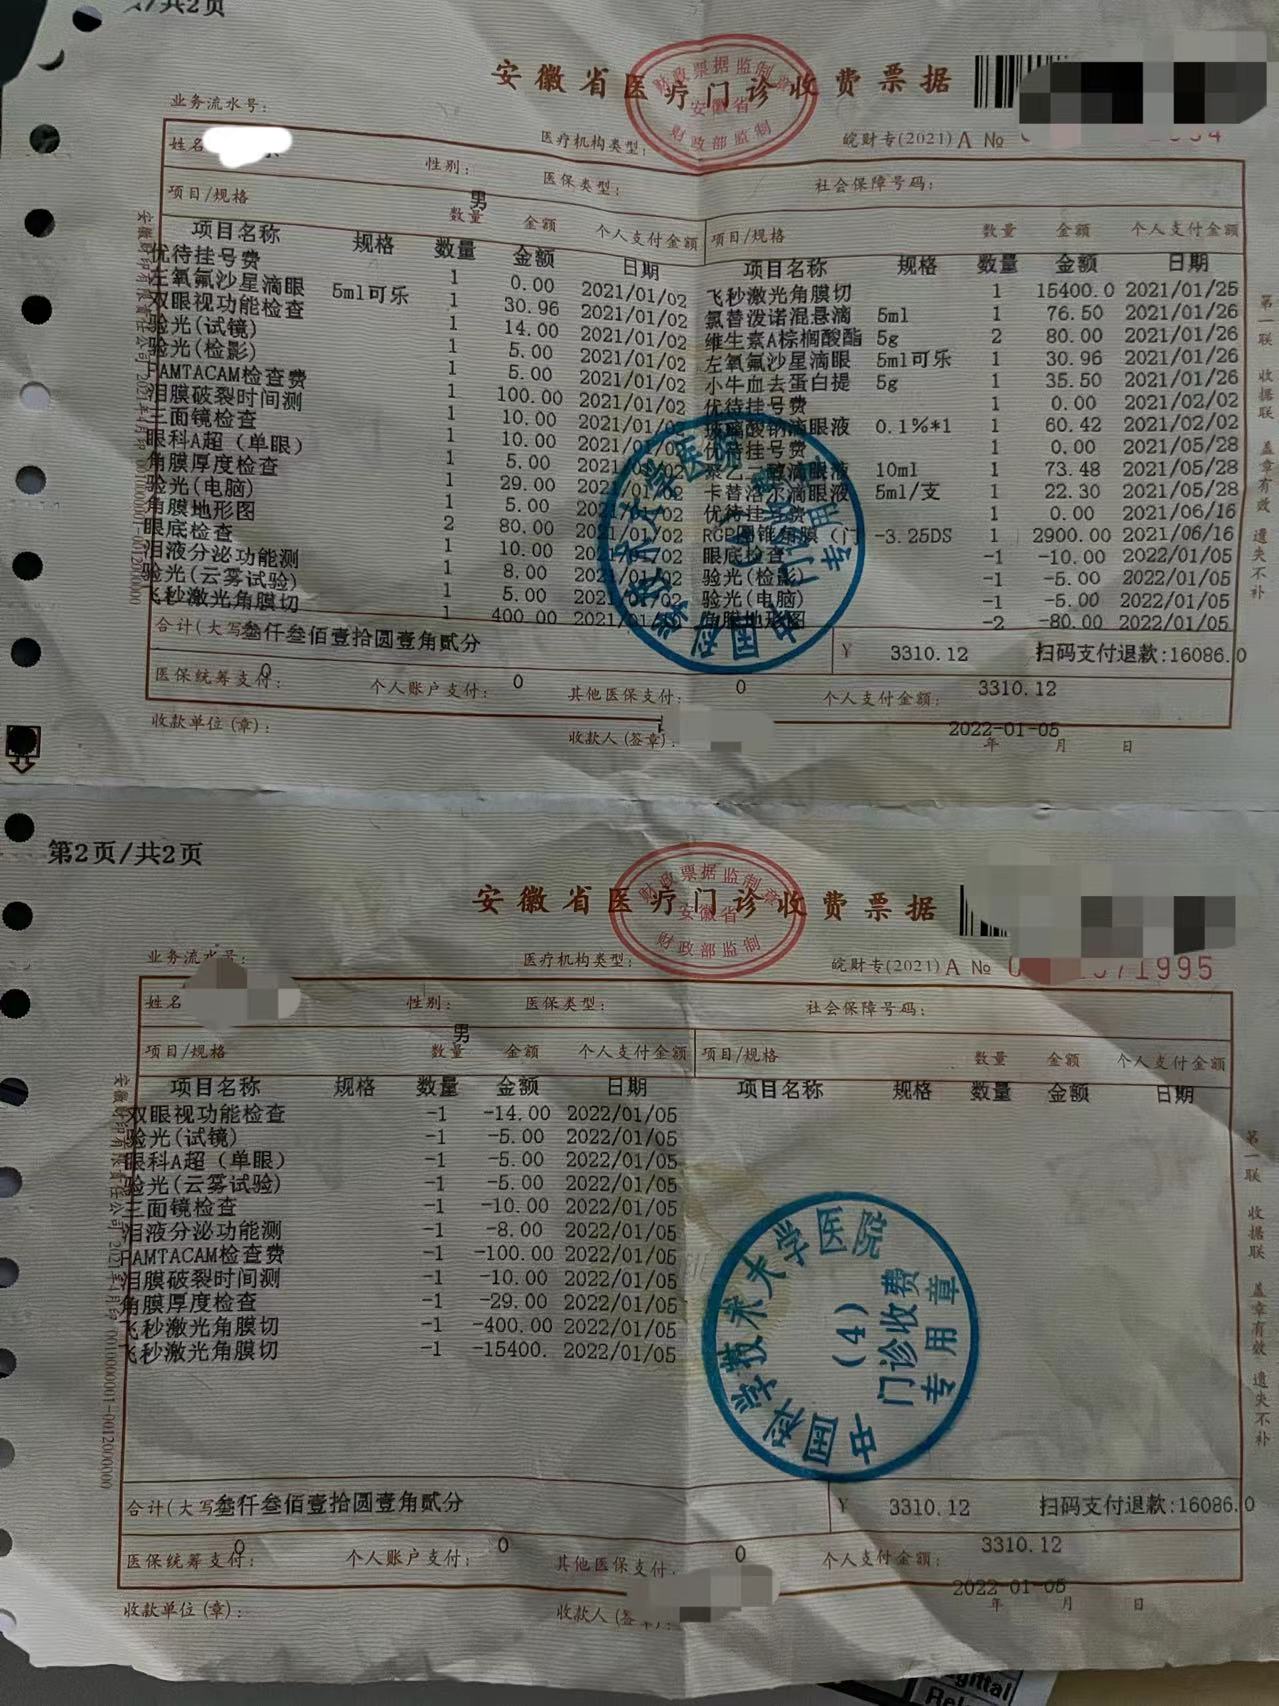 /共2页
安徽省医疗门诊收费票据
财政票据监制章
安徽省
财政部监制
业务流水号:
医疗机构类型:
皖财专(2021) A №
姓名
性别: 男
医保类型:
社会保障号码:
项目/规格 数量 金额 个人支付金额 项目/规格 数量 金额 个人支付金额
项目名称 规格 数量 金额 日期 项目名称 规格 数量 金额 日期
优待挂号费 1 0.00 2021/01/02 飞秒激光角膜切 1 15400.0 2021/01/25
左氧氟沙星滴眼 5ml可乐 1 30.96 2021/01/02 氯替泼诺混悬滴 5ml 1 76.50 2021/01/26
双眼视功能检查 1 14.00 2021/01/02 维生素A棕榈酸酯 5g 2 80.00 2021/01/26
验光(试镜) 1 5.00 2021/01/02 左氧氟沙星滴眼 5ml可乐 1 30.96 2021/01/26
验光(检影) 1 5.00 2021/01/02 小牛血去蛋白提 5g 1 35.50 2021/01/26
PAMTACAM检查费 1 100.00 2021/01/02 优待挂号费 1 0.00 2021/02/02
泪膜破裂时间测 1 10.00 2021/01/02 玻璃酸钠滴眼液 0.1%*1 1 60.42 2021/02/02
三面镜检查 1 10.00 2021/01/02 优待挂号费 1 0.00 2021/05/28
眼科A超（单眼） 1 5.00 2021/01/02 聚乙二醇滴眼液 10ml 1 73.48 2021/05/28
角膜厚度检查 1 29.00 2021/01/02 卡替洛尔滴眼液 5ml/支 1 22.30 2021/05/28
验光(电脑) 1 5.00 2021/01/02 优待挂号费 1 0.00 2021/06/16
角膜地形图 2 80.00 2021/01/02 RGP圆锥角膜（门 -3.25DS 1 2900.00 2021/06/16
眼底检查 1 10.00 2021/01/02 眼底检查 -1 -10.00 2022/01/05
泪液分泌功能测 1 8.00 2021/01/02 验光(检影) -1 -5.00 2022/01/05
验光(云雾试验) 1 5.00 2021/01/02 验光(电脑) -1 -5.00 2022/01/05
飞秒激光角膜切 1 400.00 角膜地形图 -2 -80.00 2022/01/05
合计(大写 叁仟叁佰壹拾圆壹角贰分 ¥ 3310.12 扫码支付退款:16086.0
医保统筹支付: 0 个人账户支付: 0 其他医保支付: 0 个人支付金额: 3310.12
收款单位(章): 收款人(签章): 2022-01-05
年 月 日
第一联 收据联 盖章有效 遗失不补
中国科学技术大学医院
门诊收费
专用章
第2页/共2页
安徽省医疗门诊收费票据
财政票据监制章
安徽省
财政部监制
业务流水号:
医疗机构类型:
皖财专(2021) A № 71995
姓名
性别: 男
医保类型:
社会保障号码:
项目/规格 数量 金额 个人支付金额 项目/规格 数量 金额 个人支付金额
项目名称 规格 数量 金额 日期 项目名称 规格 数量 金额 日期
双眼视功能检查 -1 -14.00 2022/01/05
验光(试镜) -1 -5.00 2022/01/05
眼科A超（单眼） -1 -5.00 2022/01/05
验光(云雾试验) -1 -5.00 2022/01/05
三面镜检查 -1 -10.00 2022/01/05
泪液分泌功能测 -1 -8.00 2022/01/05
PAMTACAM检查费 -1 -100.00 2022/01/05
泪膜破裂时间测 -1 -10.00 2022/01/05
角膜厚度检查 -1 -29.00 2022/01/05
飞秒激光角膜切 -1 -400.00 2022/01/05
飞秒激光角膜切 -1 -15400. 2022/01/05
中国科学技术大学医院
(4)
门诊收费
专用章
合计(大写 叁仟叁佰壹拾圆壹角贰分 ¥ 3310.12 扫码支付退款:16086.0
医保统筹支付: 0 个人账户支付: 0 其他医保支付: 0 个人支付金额: 3310.12
收款单位(章): 收款人(签章): 2022-01-05
年 月 日
第一联 收据联 盖章有效 遗失不补